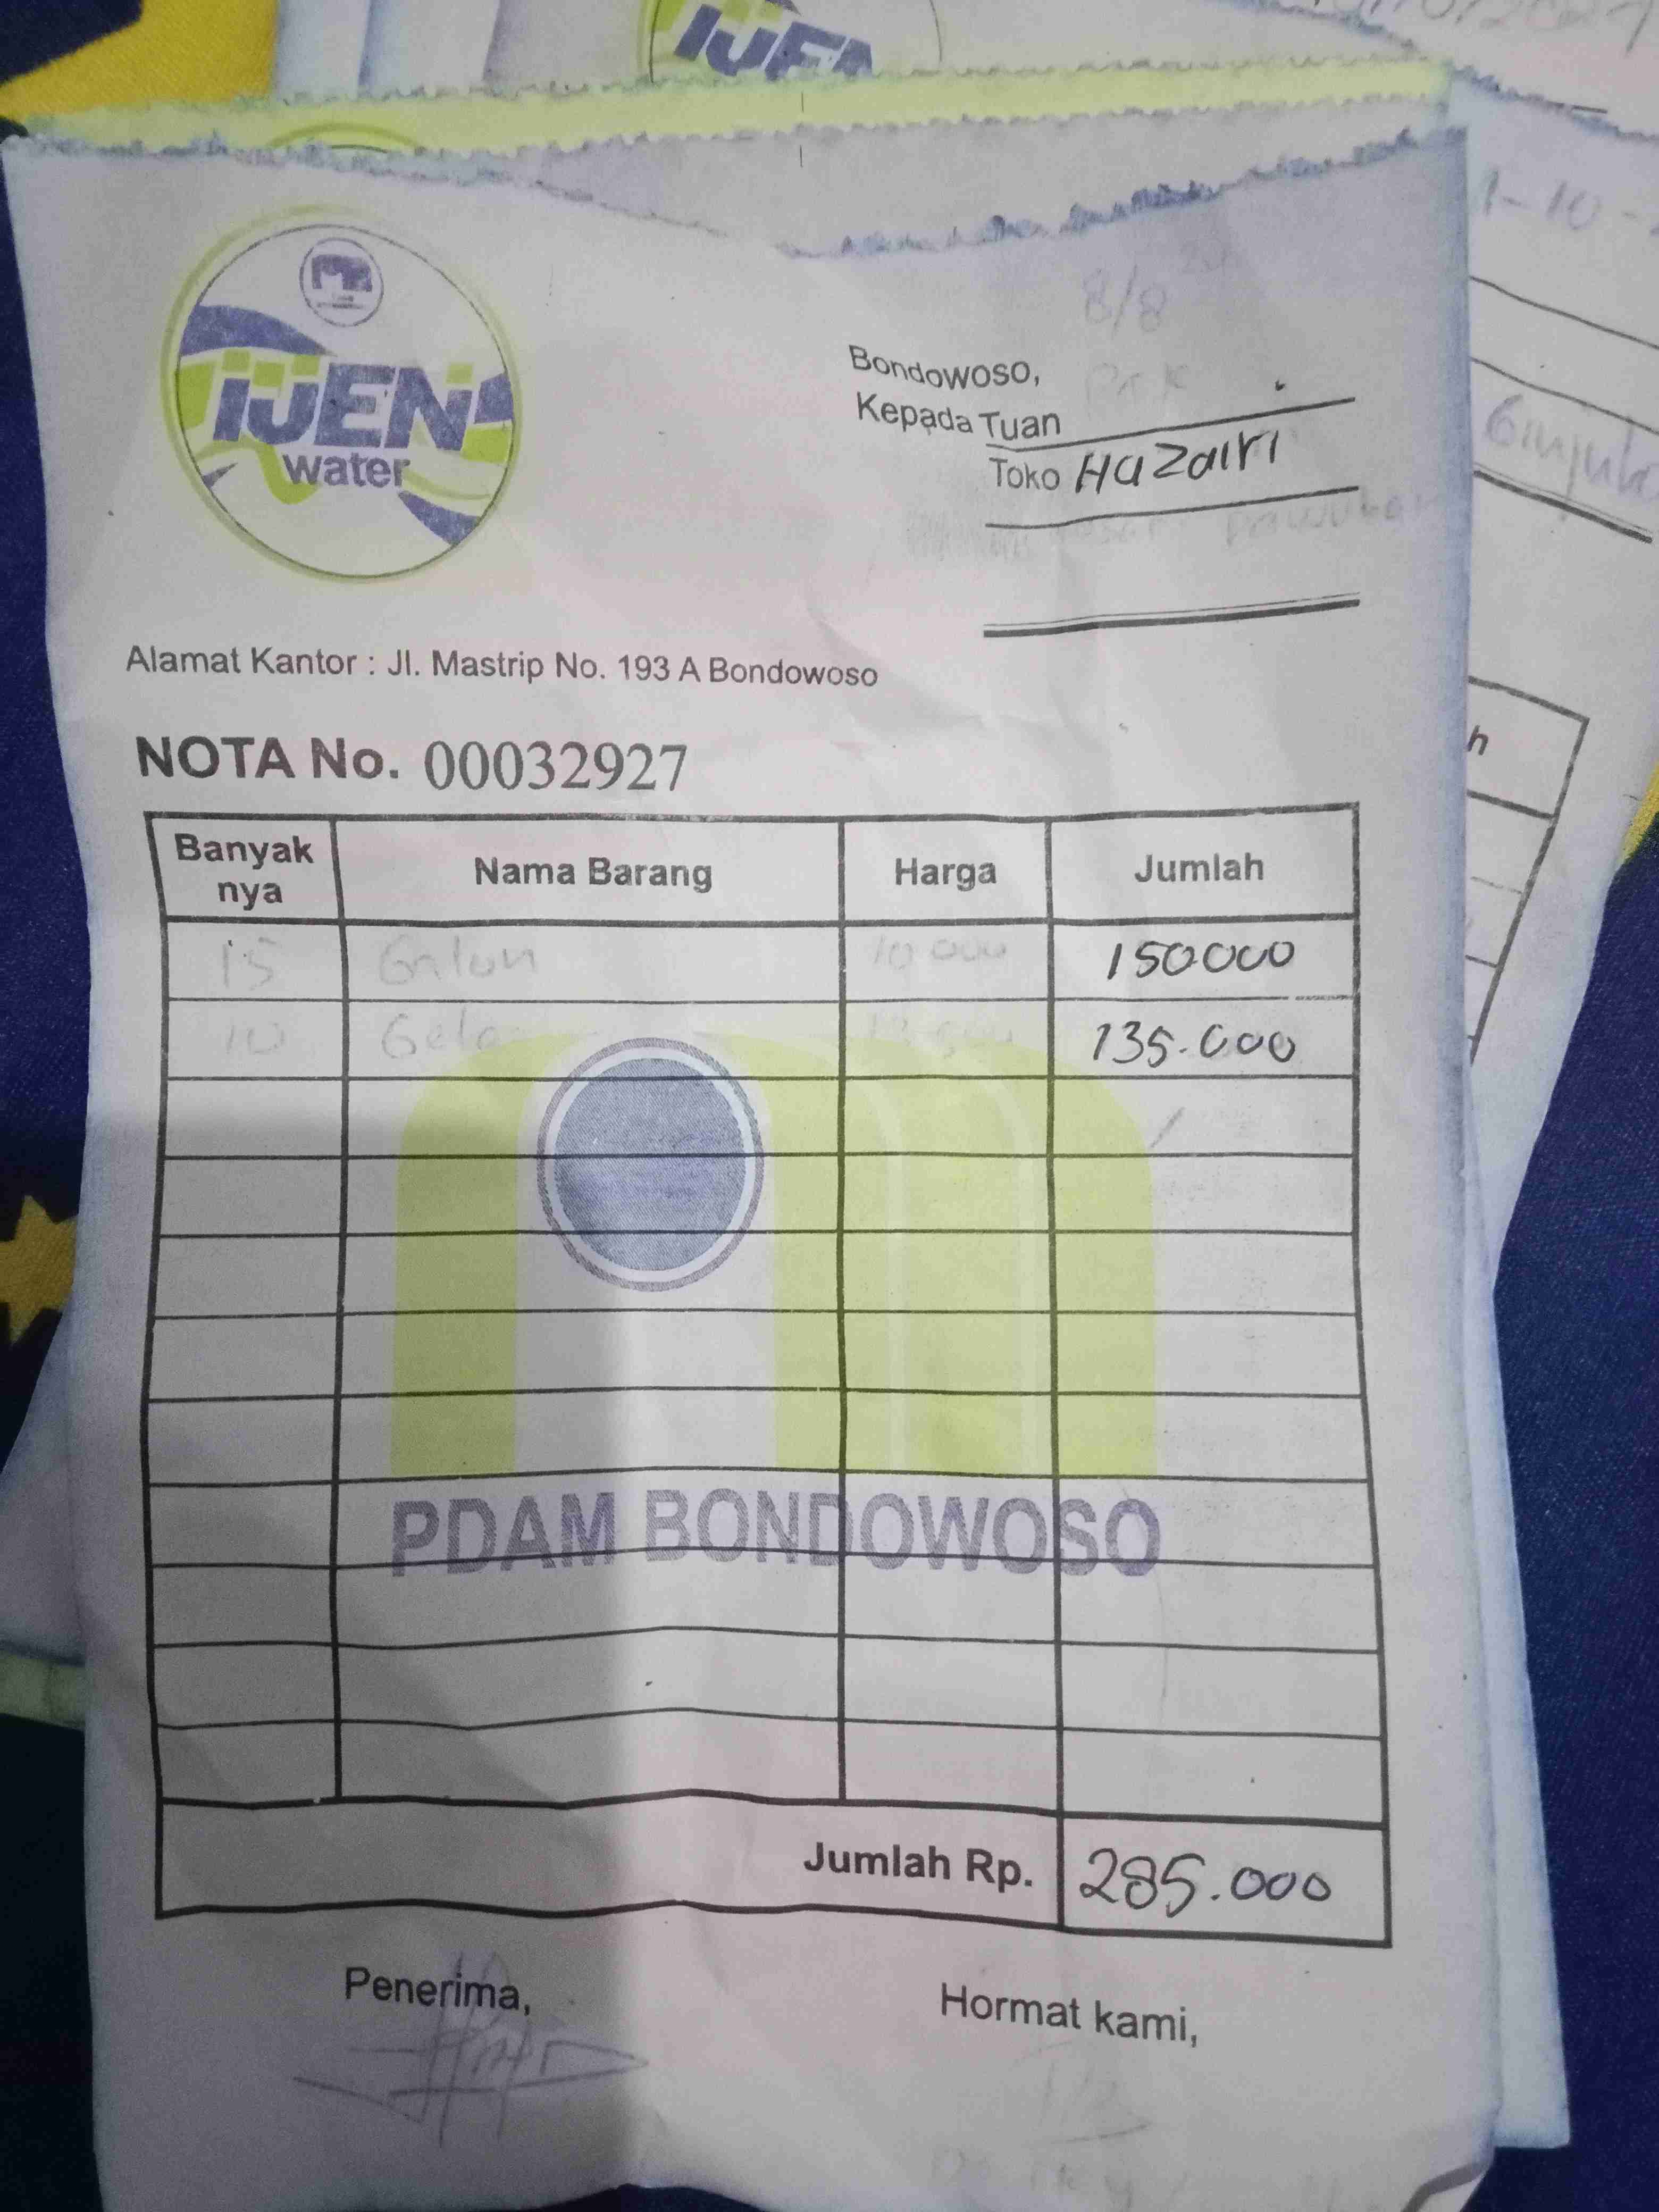 IJEN
IJEN
water
8/8
Bondowoso,
Kepada Tuan
Toko Hazairi
Alamat Kantor : Jl. Mastrip No. 193 A Bondowoso
NOTA No. 00032927
Banyak nya Nama Barang Harga Jumlah
15 Galon 10 000 150000
10 Gelas 13 500 135.000
PDAM BONDOWOSO
Jumlah Rp. 285.000
Penerima,
Hormat kami,